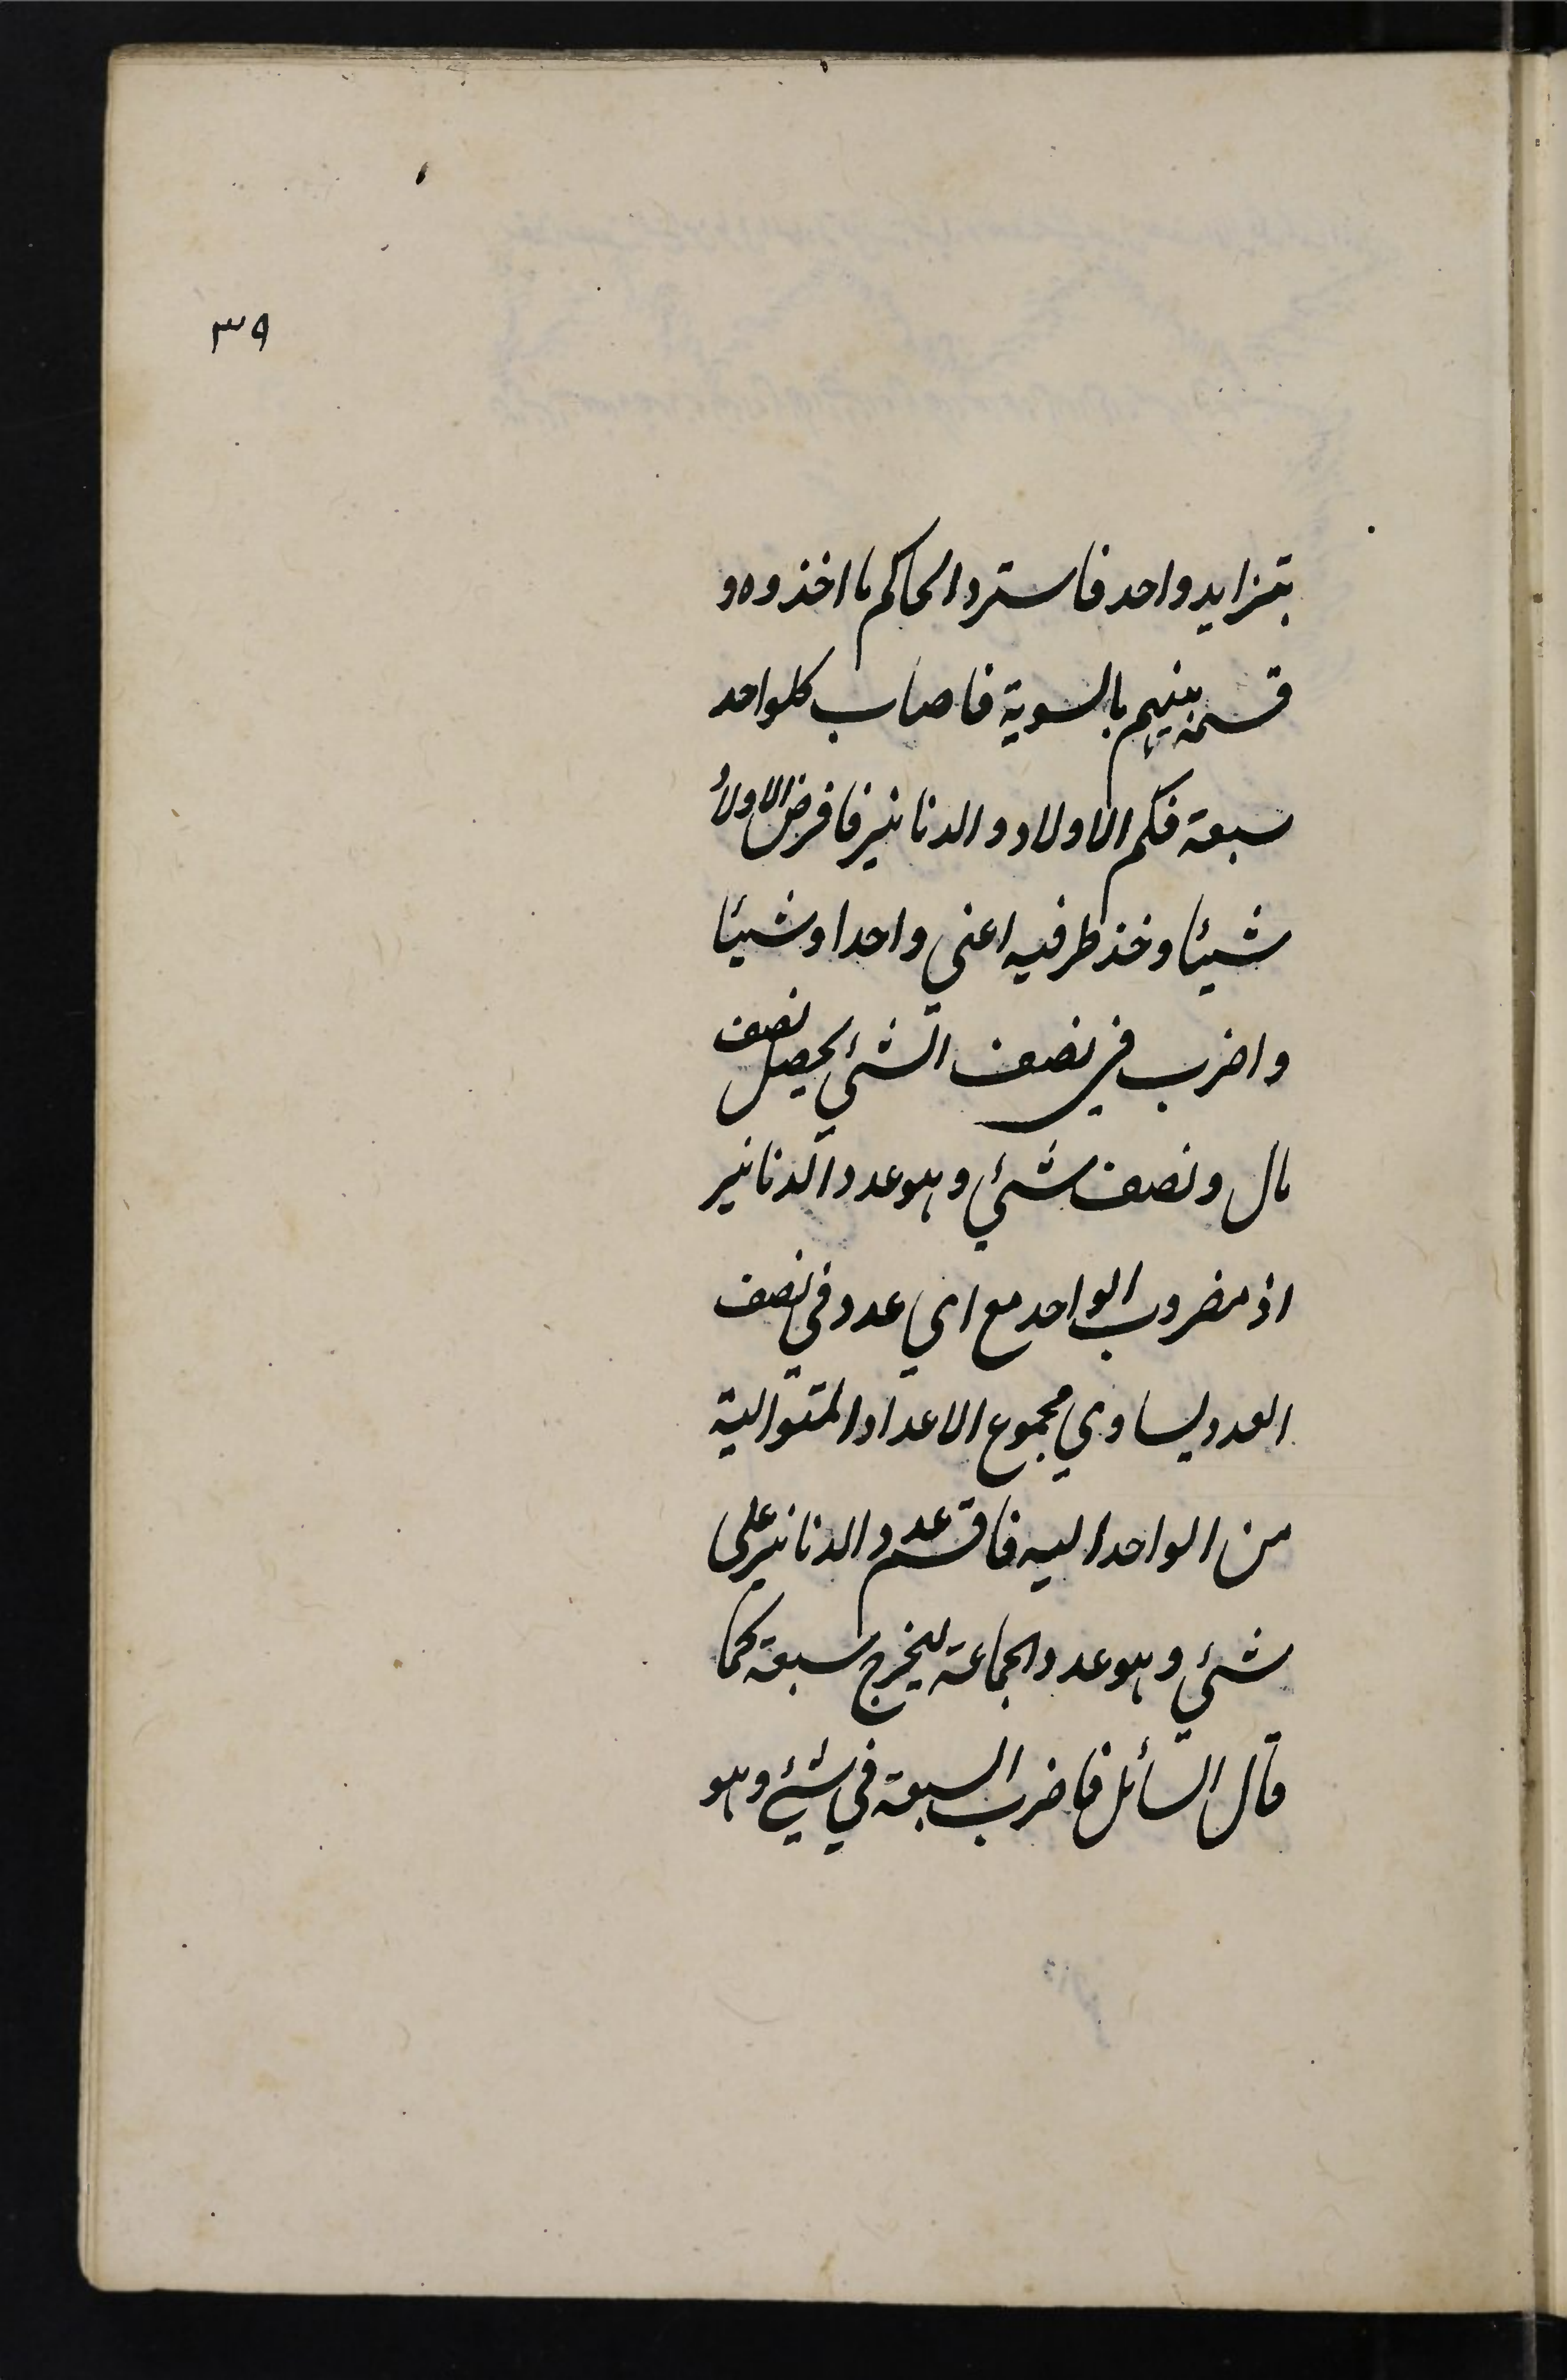 ٣٩
بتزايد واحد فاسترد الحاكم ما اخذوه و
قسمه بينهم بالسوية فاصاب كلواحد
سبعة فكم الاولاد و الدنانير فافرض الاولاد
شيئا وخذ طرفيه اعنى واحدا وشيئا
واضرب في نصف الشئي يحصل نصف
مال ونصف شئي وهو عدد الدنانير
اذ مضروب الواحد مع اي عدد في نصف
العدد يساوي مجموع الاعداد المتوالية
من الواحد اليه فاقسم عدد الدنانير على
شئي وهو عدد الجماعة ليخرج سبعة كما
قال السائل فاضرب السبعة في شئي وهو